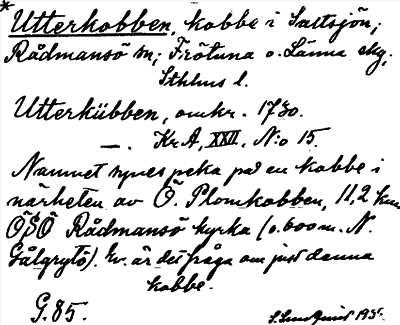 * Utterkobben, kobbe i Saltsjön;
Rådmansö sn; Frötuna o. Länna skg;
Sthlms l.
Utterkübben, omkr. 1730.
—. Kr A, XXII, N:o 15.
Namnet synes peka på en kobbe i
närheten av Ö. Plomkobben, 11,2 km
ÖSÖ Rådmansö kyrka (o. 600 m. N.
Gålgrytö). Ev. är det fråga om just denna
kobbe.
G. 85.